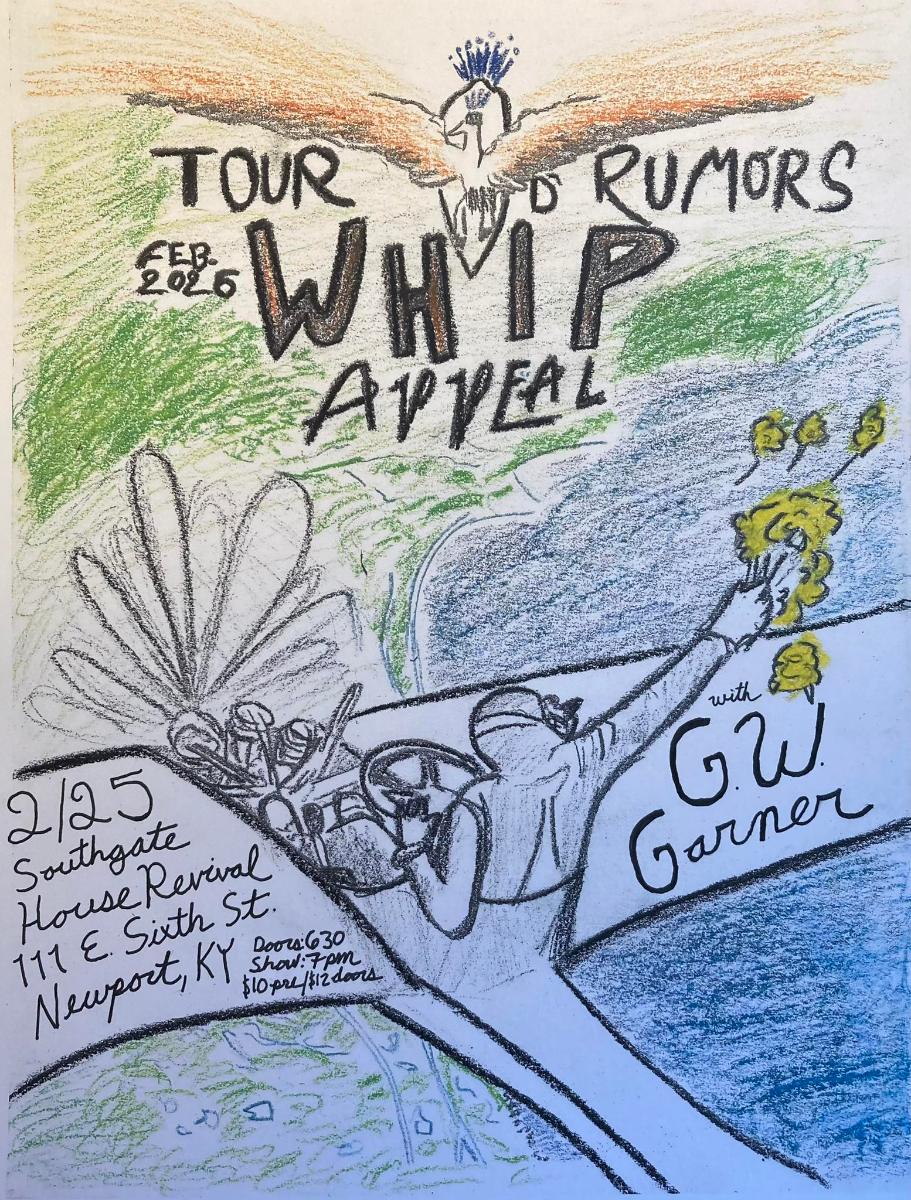 TOUR D' RUMORS
FEB.
2026
WHIP
APPEAL
with
G.W.
Garner
2/25
Southgate
House Revival
111 E. Sixth St.
Newport, KY
Doors: 630
Show: 7pm
$10 pre/$12 doors